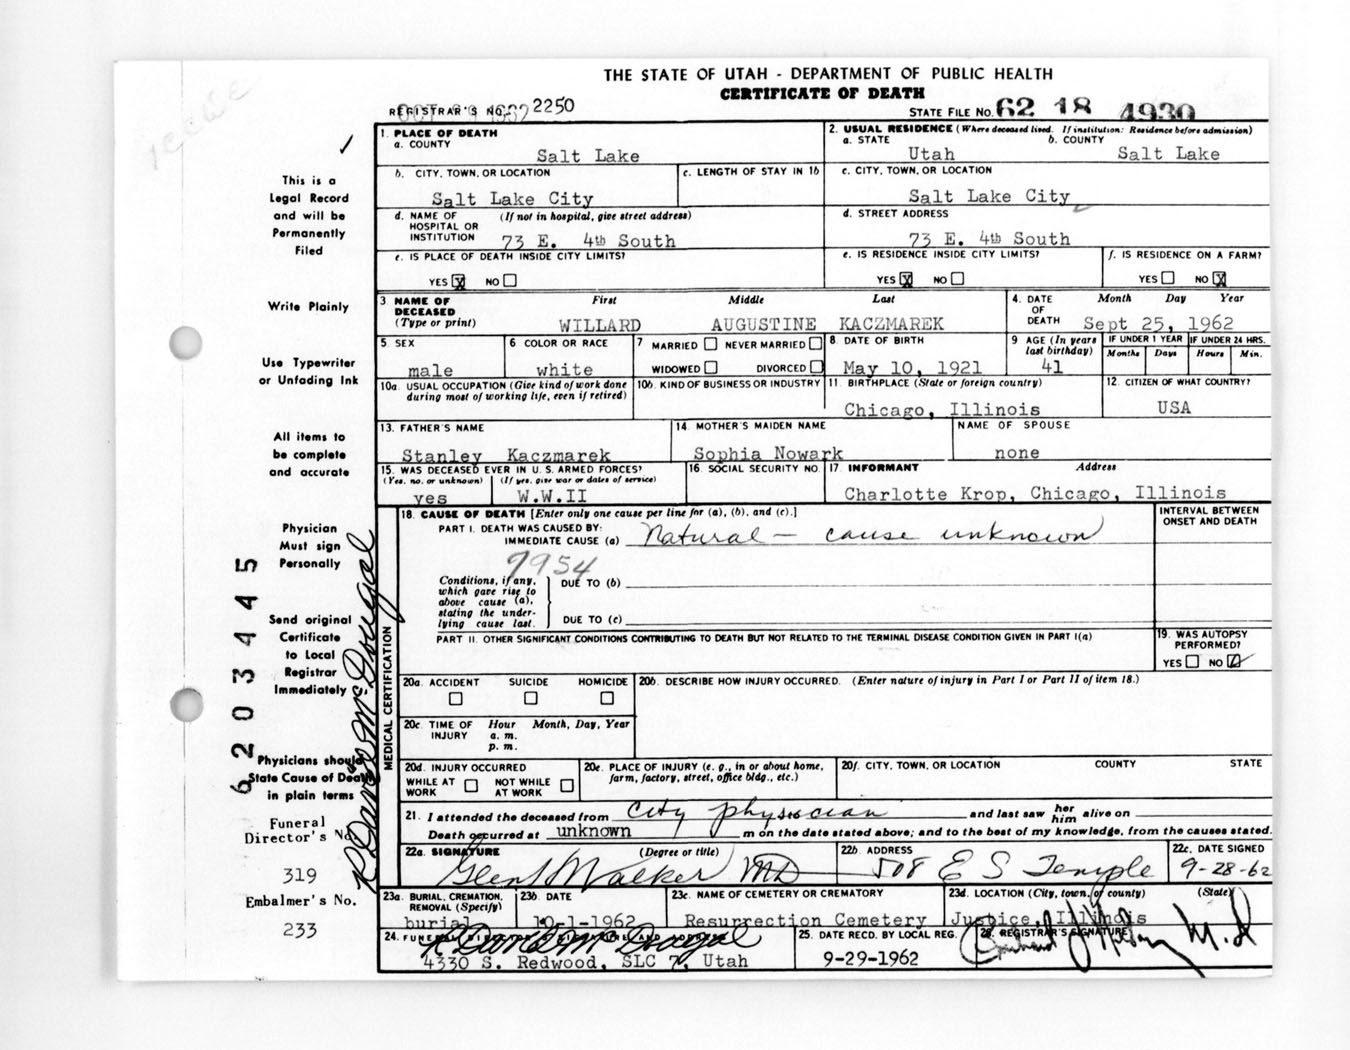 THE STATE OF UTAH - DEPARTMENT OF PUBLIC HEALTH
CERTIFICATE OF DEATH
REGISTRAR'S NO. 2250
STATE FILE NO. 62 18 4930
This is a
Legal Record
and will be
Permanently
Filed
Write Plainly
Use Typewriter
or Unfading Ink
All items to
be complete
and accurate
Physician
Must sign
Personally
Send original
Certificate
to Local
Registrar
Immediately
Physicians should
State Cause of Death
in plain terms
Funeral
Director's No.
319
Embalmer's No.
233
6203445
R David McDougal
1. PLACE OF DEATH
a. COUNTY
Salt Lake
2. USUAL RESIDENCE (Where deceased lived. If institution: Residence before admission)
a. STATE b. COUNTY
Utah Salt Lake
b. CITY, TOWN, OR LOCATION
Salt Lake City
c. LENGTH OF STAY IN 1b
c. CITY, TOWN, OR LOCATION
Salt Lake City
d. NAME OF HOSPITAL OR INSTITUTION (If not in hospital, give street address)
73 E. 4th South
d. STREET ADDRESS
73 E. 4th South
e. IS PLACE OF DEATH INSIDE CITY LIMITS?
YES X NO
e. IS RESIDENCE INSIDE CITY LIMITS?
YES X NO
f. IS RESIDENCE ON A FARM?
YES NO X
3. NAME OF DECEASED (Type or print) First Middle Last
WILLARD AUGUSTINE KACZMAREK
4. DATE OF DEATH Month Day Year
Sept 25, 1962
5. SEX
male
6 COLOR OR RACE
white
7 MARRIED NEVER MARRIED
WIDOWED DIVORCED
8. DATE OF BIRTH
May 10, 1921
9 AGE (In years last birthday)
41
IF UNDER 1 YEAR IF UNDER 24 HRS.
Months Days Hours Min.
10a. USUAL OCCUPATION (Give kind of work done during most of working life, even if retired)
10b. KIND OF BUSINESS OR INDUSTRY
11. BIRTHPLACE (State or foreign country)
Chicago, Illinois
12. CITIZEN OF WHAT COUNTRY?
USA
13. FATHER'S NAME
Stanley Kaczmarek
14 MOTHER'S MAIDEN NAME
Sophia Nowark
NAME OF SPOUSE
none
15. WAS DECEASED EVER IN U. S. ARMED FORCES?
(Yes, no, or unknown) (If yes, give war or dates of service)
yes W.W.II
16. SOCIAL SECURITY NO.
17. INFORMANT Address
Charlotte Krop, Chicago, Illinois
MEDICAL CERTIFICATION
18. CAUSE OF DEATH [Enter only one cause per line for (a), (b), and (c).]
INTERVAL BETWEEN ONSET AND DEATH
PART I. DEATH WAS CAUSED BY:
IMMEDIATE CAUSE (a) Natural - cause unknown
7954
Conditions, if any, which gave rise to above cause (a), stating the underlying cause last.
DUE TO (b)
DUE TO (c)
PART II. OTHER SIGNIFICANT CONDITIONS CONTRIBUTING TO DEATH BUT NOT RELATED TO THE TERMINAL DISEASE CONDITION GIVEN IN PART I(a)
19. WAS AUTOPSY PERFORMED?
YES NO
20a. ACCIDENT SUICIDE HOMICIDE
20b. DESCRIBE HOW INJURY OCCURRED. (Enter nature of injury in Part I or Part II of item 18.)
20c. TIME OF INJURY Hour Month, Day, Year
a. m.
p. m.
20d. INJURY OCCURRED
WHILE AT WORK NOT WHILE AT WORK
20e. PLACE OF INJURY (e. g., in or about home, farm, factory, street, office bldg., etc.)
20f. CITY, TOWN, OR LOCATION COUNTY STATE
21. I attended the deceased from city physician and last saw her him alive on
Death occurred at unknown m on the date stated above; and to the best of my knowledge, from the causes stated.
22a. SIGNATURE (Degree or title)
Glen Walker MD
22b. ADDRESS
508 E S Temple
22c. DATE SIGNED
9-28-62
23a. BURIAL, CREMATION, REMOVAL (Specify)
burial
23b. DATE
10-1-1962
23c. NAME OF CEMETERY OR CREMATORY
Resurrection Cemetery
23d. LOCATION (City, town, or county) (State)
Justice, Illinois
24. FUNERAL DIRECTOR'S SIGNATURE AND ADDRESS
R David McDougal
4330 S. Redwood, SLC 7, Utah
25. DATE RECD. BY LOCAL REG.
9-29-1962
26. REGISTRAR'S SIGNATURE
M.D